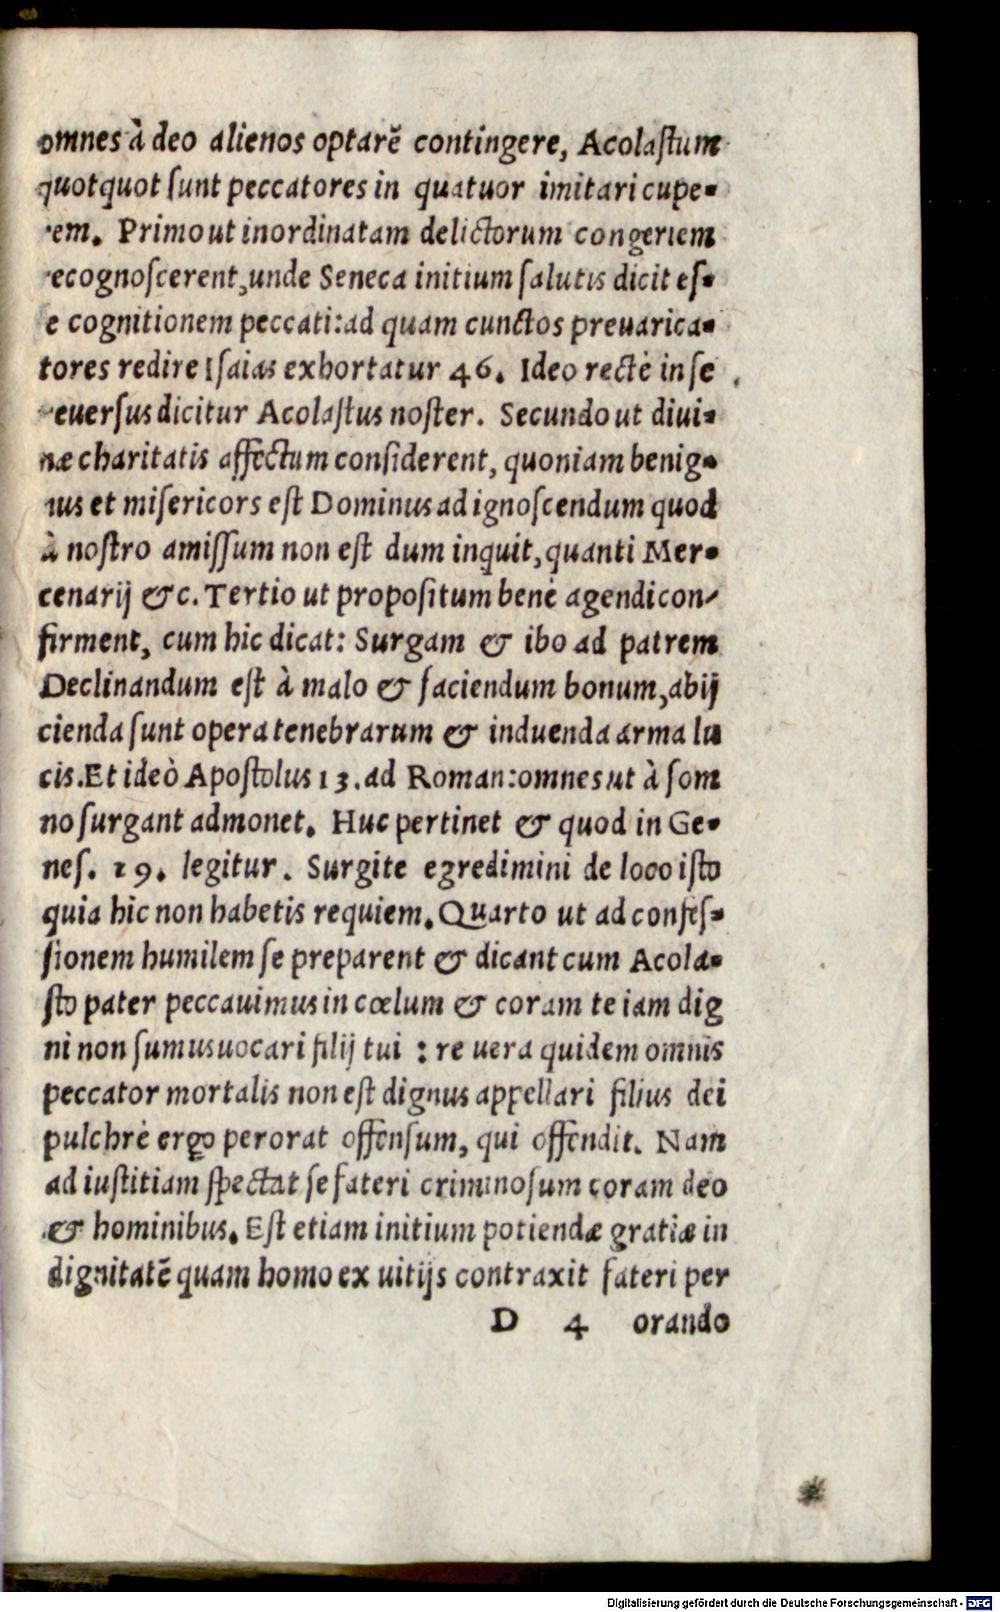 omnes à deo alienos optarē contingere, Acolaſtum
quotquot ſunt peccatores in quatuor imitari cupe-
rem. Primo ut inordinatam delictorum congeriem
recognoſcerent, unde Seneca initium ſalutis dicit eſ-
e cognitionem peccati: ad quam cunctos preuarica-
tores redire Iſaias exhortatur 46. Ideo rectè in ſe
reuerſus dicitur Acolaſtus noſter. Secundo ut diui-
næ charitatis affectum conſiderent, quoniam benig-
nus et miſericors eſt Dominus ad ignoſcendum quod
à noſtro amiſſum non eſt dum inquit, quanti Mer-
cenarij &c. Tertio ut propoſitum benè agendi con-
firment, cum hic dicat: Surgam & ibo ad patrem
Declinandum eſt à malo & faciendum bonum, abij
cienda ſunt opera tenebrarum & induenda arma lu
cis. Et ideò Apoſtolus 13. ad Roman: omnes ut à ſom
no ſurgant admonet. Huc pertinet & quod in Ge-
neſ. 19. legitur. Surgite egredimini de loco iſto
quia hic non habetis requiem. Quarto ut ad confeſ-
ſionem humilem ſe preparent & dicant cum Acola-
ſto pater peccauimus in cœlum & coram te iam dig
ni non ſumus uocari filij tui : re uera quidem omnis
peccator mortalis non eſt dignus appellari filius dei
pulchrè ergo perorat offenſum, qui offendit. Nam
ad iuſtitiam ſpectat ſe fateri criminoſum coram deo
& hominibus. Eſt etiam initium potiendæ gratiæ in
dignitatē quam homo ex uitijs contraxit fateri per
D 4 orando
Digitalisierung gefördert durch die Deutsche Forschungsgemeinschaft - DFG